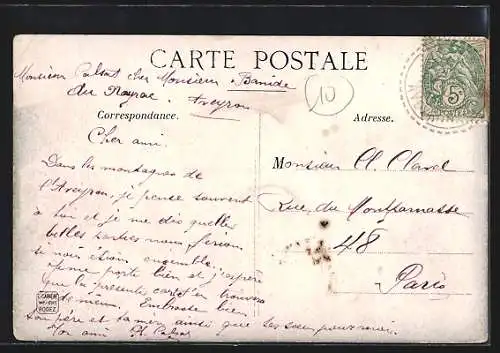 CARTE POSTALE
Monsieur Calvat chez Monsieur Banide
du Nayrac. Aveyron
10
5c
Correspondance.
Adresse.
Cher ami.
Dans les montagnes de
l'Aveyron, je pense souvent
à toi et je me dis quelles
belles parties nous ferions
si nous étions ensemble.
porte bien et j'espère
que la présente carte t'en trouvera
de même. Embrasse bien
ton père et ta mère ainsi que
Ton ami
Monsieur A. Clavel
Rue du Montparnasse
48
Paris
RODEZ